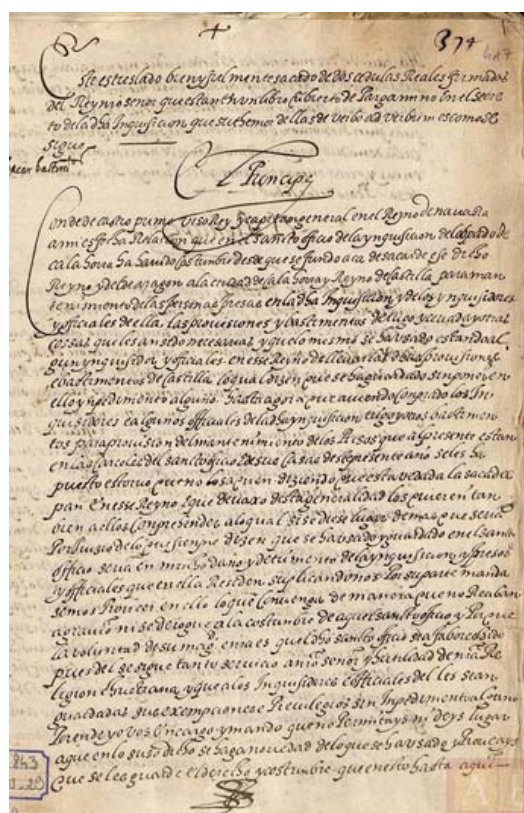 +
374
417
Este es treslado bien y fiel mente sacado de dos cedulas Reales firmadas
del Rey nro señor que estan en un libro cubierto de Pargamino en el secre
to de la dha Inquisicion, que su thenor dellas de verbo ad verbum es como se
sigue
sacar bastimtos
El Principe
Conde de castro primo visorrey y capitan general en el Reyno de navarra
a mi es fha Relacion que en el sancto officio de la ynquisicion
calahorra ha havido costumbre desde que se fundo aca de sacar de ese dicho
Reyno y del de aragon a la ciudad de calahorra y Reyno de castilla para man
tenimiento de las personas presas en la dha Inquisicion y de los ynquisidores
y officiales de ella, las provisiones y bastimentos de trigo y cevada y otras
cossas que les an sido necesarias, y que lo mesmo se ha usado estando al
gun ynquisidor y officiales en esse Reyno de llevar las dhas provisiones
e bastimentos de castilla lo qual dizen que se ha guardado sin poner en
ello ynpedimiento alguno hasta agora que aviendo comprado los In
quisidores e algunos officiales de la dha ynquisicion trigo y otros bastimen
tos para provision del mantenimiento de los presos que al presente estan
en las carceles del sancto officio e de sus casas deste presente año se les ha
puesto estorvo que no lo saquen diziendo que esta vedada la saca de
pan en esse Reyno e que devaxo desta generalidad los quieren tan
bien a ellos comprehender a lo qual si se diese lugar demas que seria
perjuisio de lo que siempre dizen que se ha usado y guardado en el sancto
officio seria en mucho daño y detrimento de la ynquisicion y presos
y officiales que en ella Residen suplicandonos por su parte manda
semos proveer en ello lo que convenga de manera que no Reciban
agravio ni se derogue a la costumbre de aquel sancto officio y Por que
la voluntad de su magd e mia es que el dho sancto officio sea faborescido
pues del se sigue tanto servicio a nro señor y utilidad de nra Re
ligion christiana y que a los Inquisidores e officiales del les sean
guardadas sus exempciones e Previlegios sin Impedimento alguno
Por ende yo vos encargo y mando que no Permitays ni deys lugar
a que en lo suso dicho se haga novedad de lo que se ha usado y Proveays
que se les guarde el derecho y costumbre que en esto hasta aqui
243